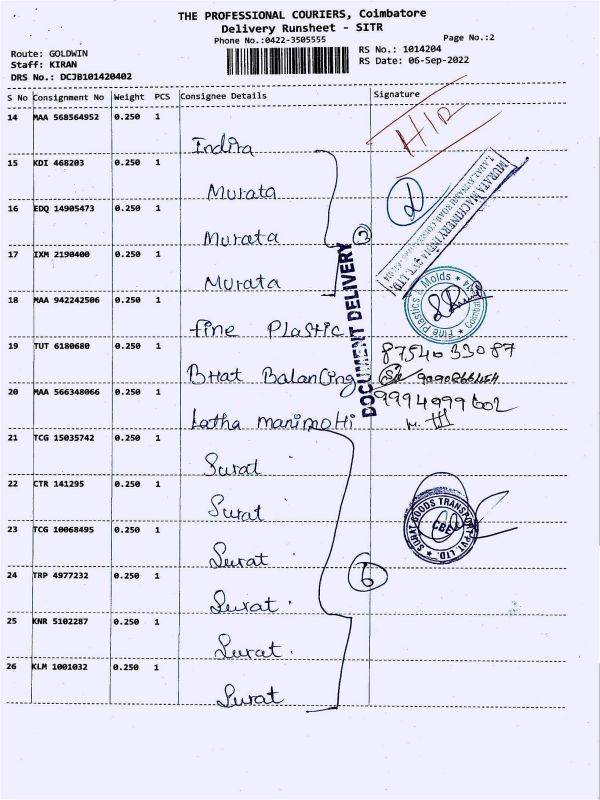 THE PROFESSIONAL COURIERS, Coimbatore
Delivery Runsheet - SITR
Phone No.:0422-3505555
Page No.:2
Route: GOLDWIN
RS No.: 1014204
Staff: KIRAN
RS Date: 06-Sep-2022
DRS No.: DCJB101420402
S No Consignment No Weight PCS Consignee Details Signature
14 MAA 568564952 0.250 1
Indira
15 KDI 468203 0.250 1
Murata
16 EDQ 14905473 0.250 1
Murata
3
17 IXM 2190400 0.250 1
Murata
DOCUMENT DELIVERY
MURATA MACHINERY INDIA PVT. LTD.
18 MAA 942242506 0.250 1
fine Plastic
Fine Plastics & Molds
19 TUT 6180680 0.250 1
8754033087
Bhat Balancing
20 MAA 566348066 0.250 1
9994999602
Latha manimohi
21 TCG 15035742 0.250 1
Surat
22 CTR 141295 0.250 1
Surat
SURAT GOODS TRANSPORT PVT. LTD.
CBE
23 TCG 10068495 0.250 1
Surat
6
24 TRP 4977232 0.250 1
Surat
25 KNR 5102287 0.250 1
Surat
26 KLM 1001032 0.250 1
Surat